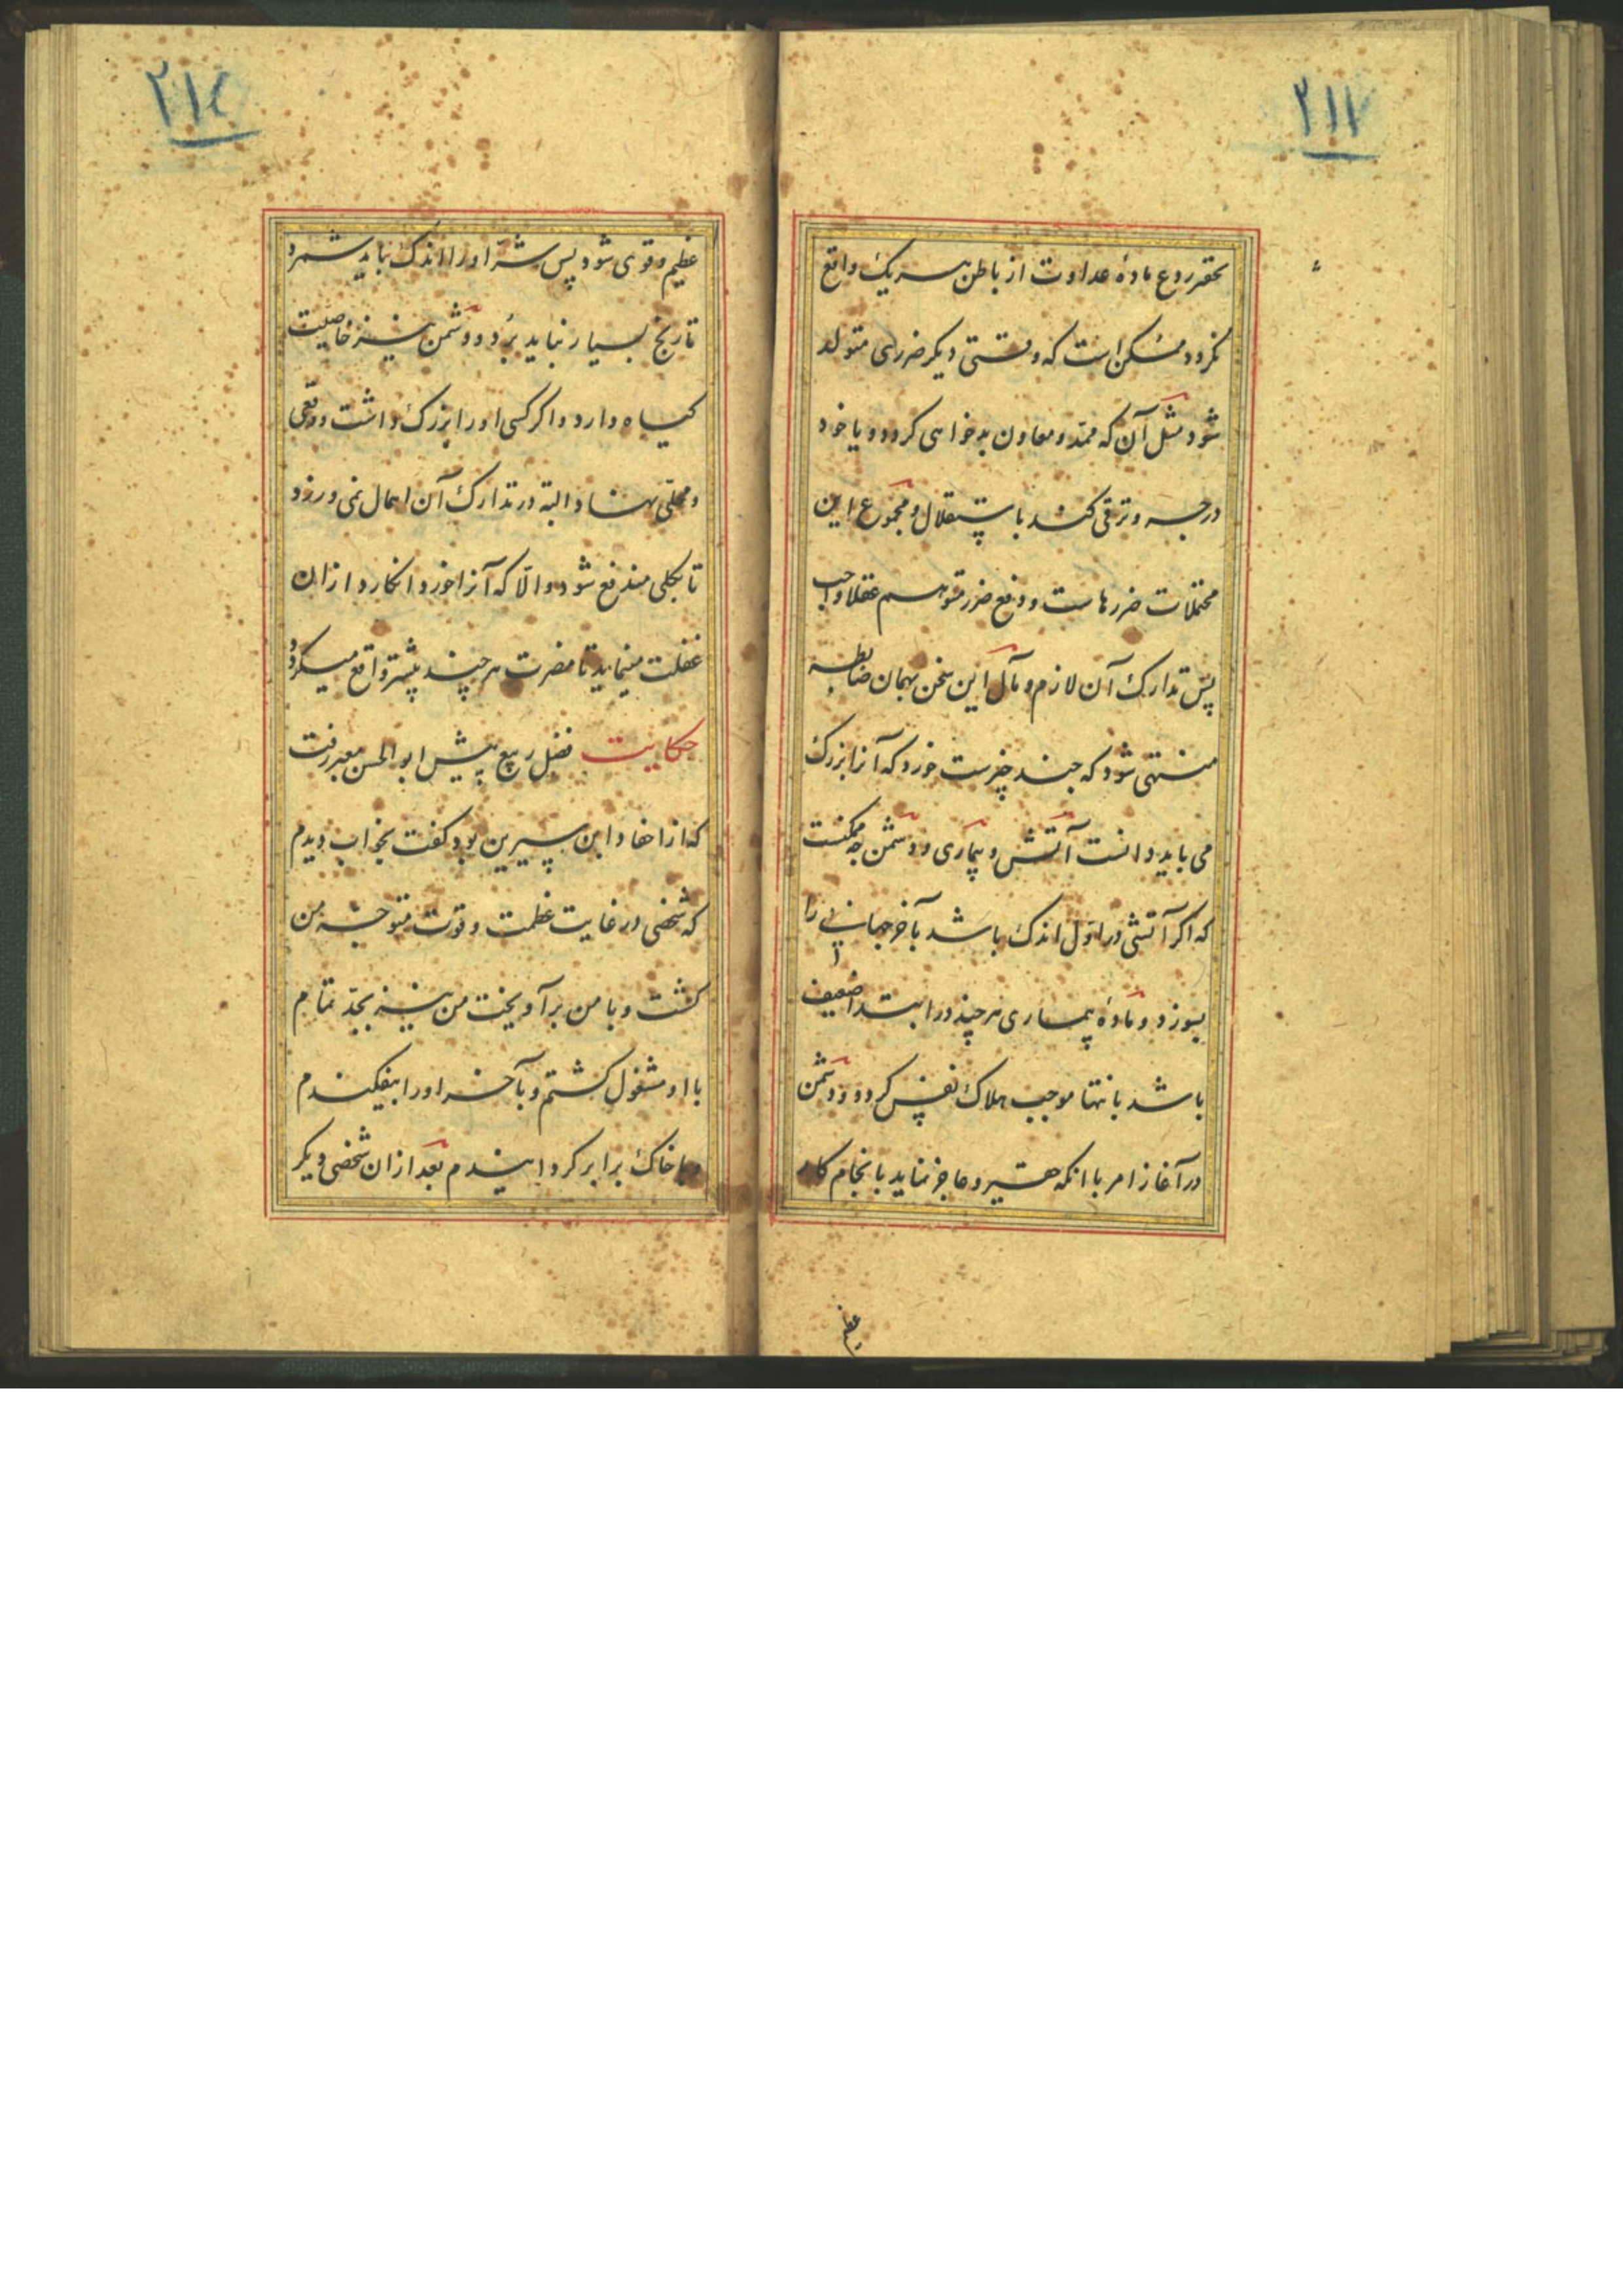 ۲۱۱
عداوت از باطن هر یک واقع
نکردد ممکن است که وقتی دیکر ضرری متولد
شود مثل آن که ممد و معاون بدخواهی کردد و یا خود
درجه و ترقی کند باستقلال و مجموع این
محتملات ضررهاست و دفع ضرر متوهم عقلا واجب
پس تدارک آن لازم و مآل این سخن بهمان ضابطه
منتهی شود که چند چیزست خورد که آنرا بزرک
می باید دانست آتش و بیماری و دشمن چه ممکنست
که اکر آتشی در اول اندک باشد بآخر جهانی را
بسوزد و مادهٔ بیماری هر چند در ابتدا ضعیف
باشد بانتها موجب هلاک نفس کردد و دشمن
در آغاز امر با انکه حقیر و عاجز نماید بانجام کار
عظیم
۲۱٤
عظیم و قوی شود پس شر او را اندک نباید شمرد
تا رنج بسیار نباید برد و دشمن نیز خاصیت
کیاه دارد و اکر کسی او را بزرک داشت و وقعی
و محلی نهاد البته در تدارک آن اهمال نمی ورزد
تا بکلی مندفع شود و الا که آنرا خورد انکارد ازان
غفلت مینماید تا مضرت هر چند بیشتر واقع میکردد
حکایت فضل ربیع پیش ابو الحسن معبر رفت
که از احفاد ابن سیرین بود کفت بخواب دیدم
که شخصی در غایت عظمت و قوت متوجه من
کشت و با من برآویخت من نیز بجد تمام
با او مشغول کشتم و بآخر او را بیفکندم
و با خاک برابر کردانیدم بعد ازان شخصی دیکر